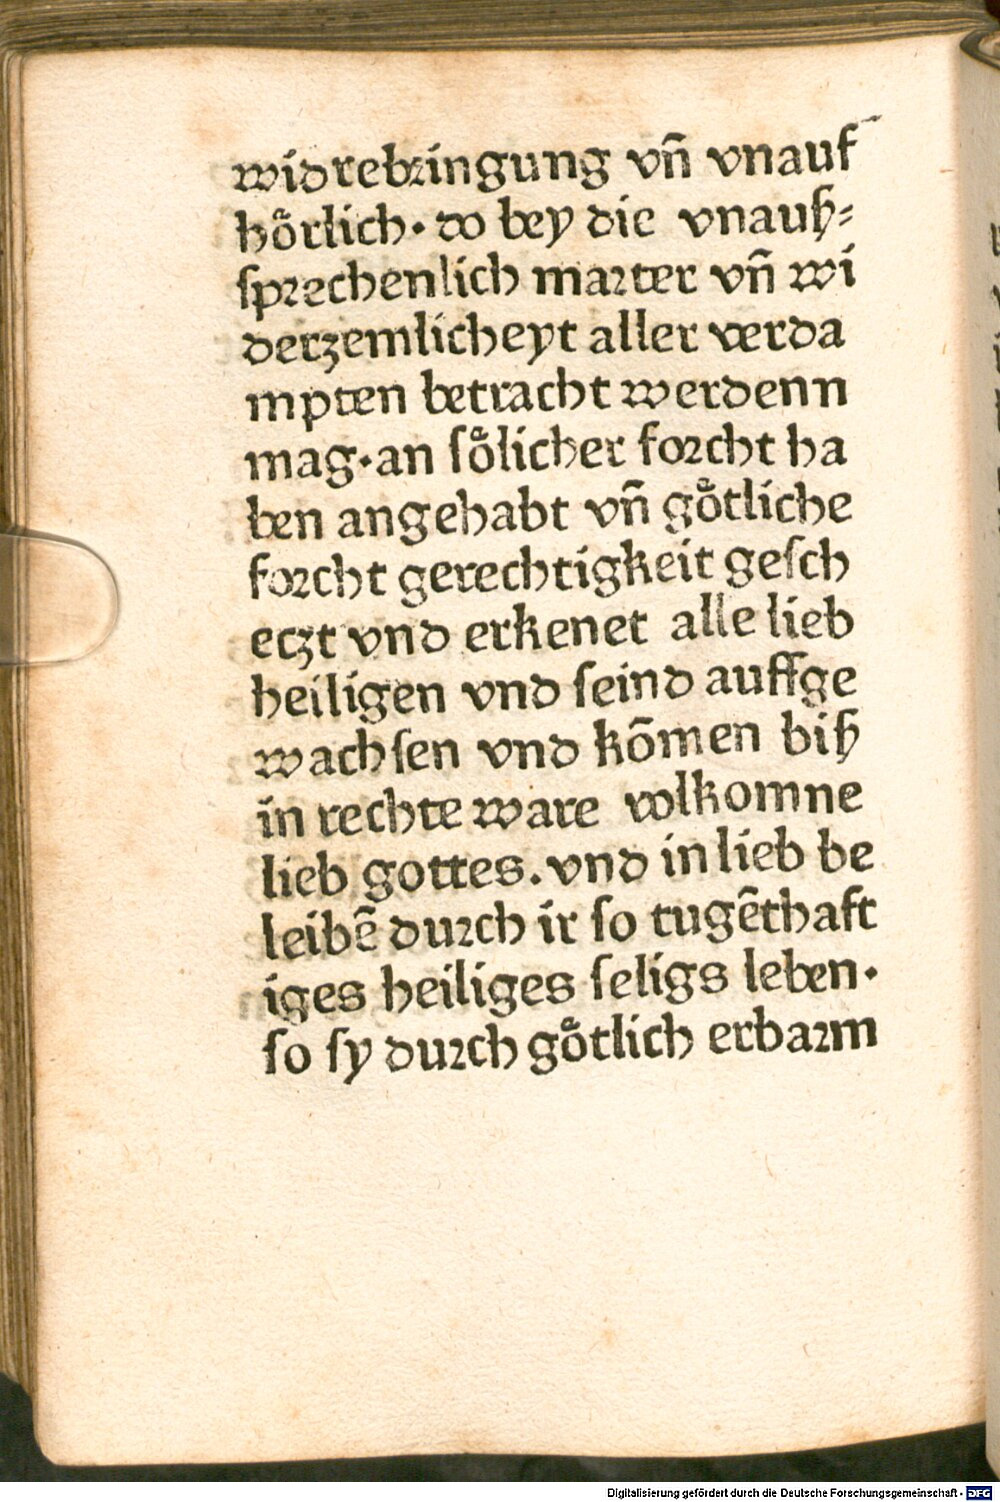 widrebringung vñ vnauf
hoͤrlich· do bey die vnauß⸗
ſprechenlich marter vñ wi
derzemlicheyt aller verda
mpten betracht werdenn
mag·an ſoͤlicher forcht ha
ben angehabt vñ goͤtliche
forcht gerechtigkeit geſch
eczt vnd erkenet alle lieb
heiligen vnd ſeind auffge
wachſen vnd kōmen biß
in rechte ware volkomne
lieb gottes.vnd in lieb be
leibē durch ir ſo tugēthaft
iges heiliges ſeligs leben·
ſo ſy durch goͤtlich erbarm
Digitalisierung gefördert durch die Deutsche Forschungsgemeinschaft - DFG